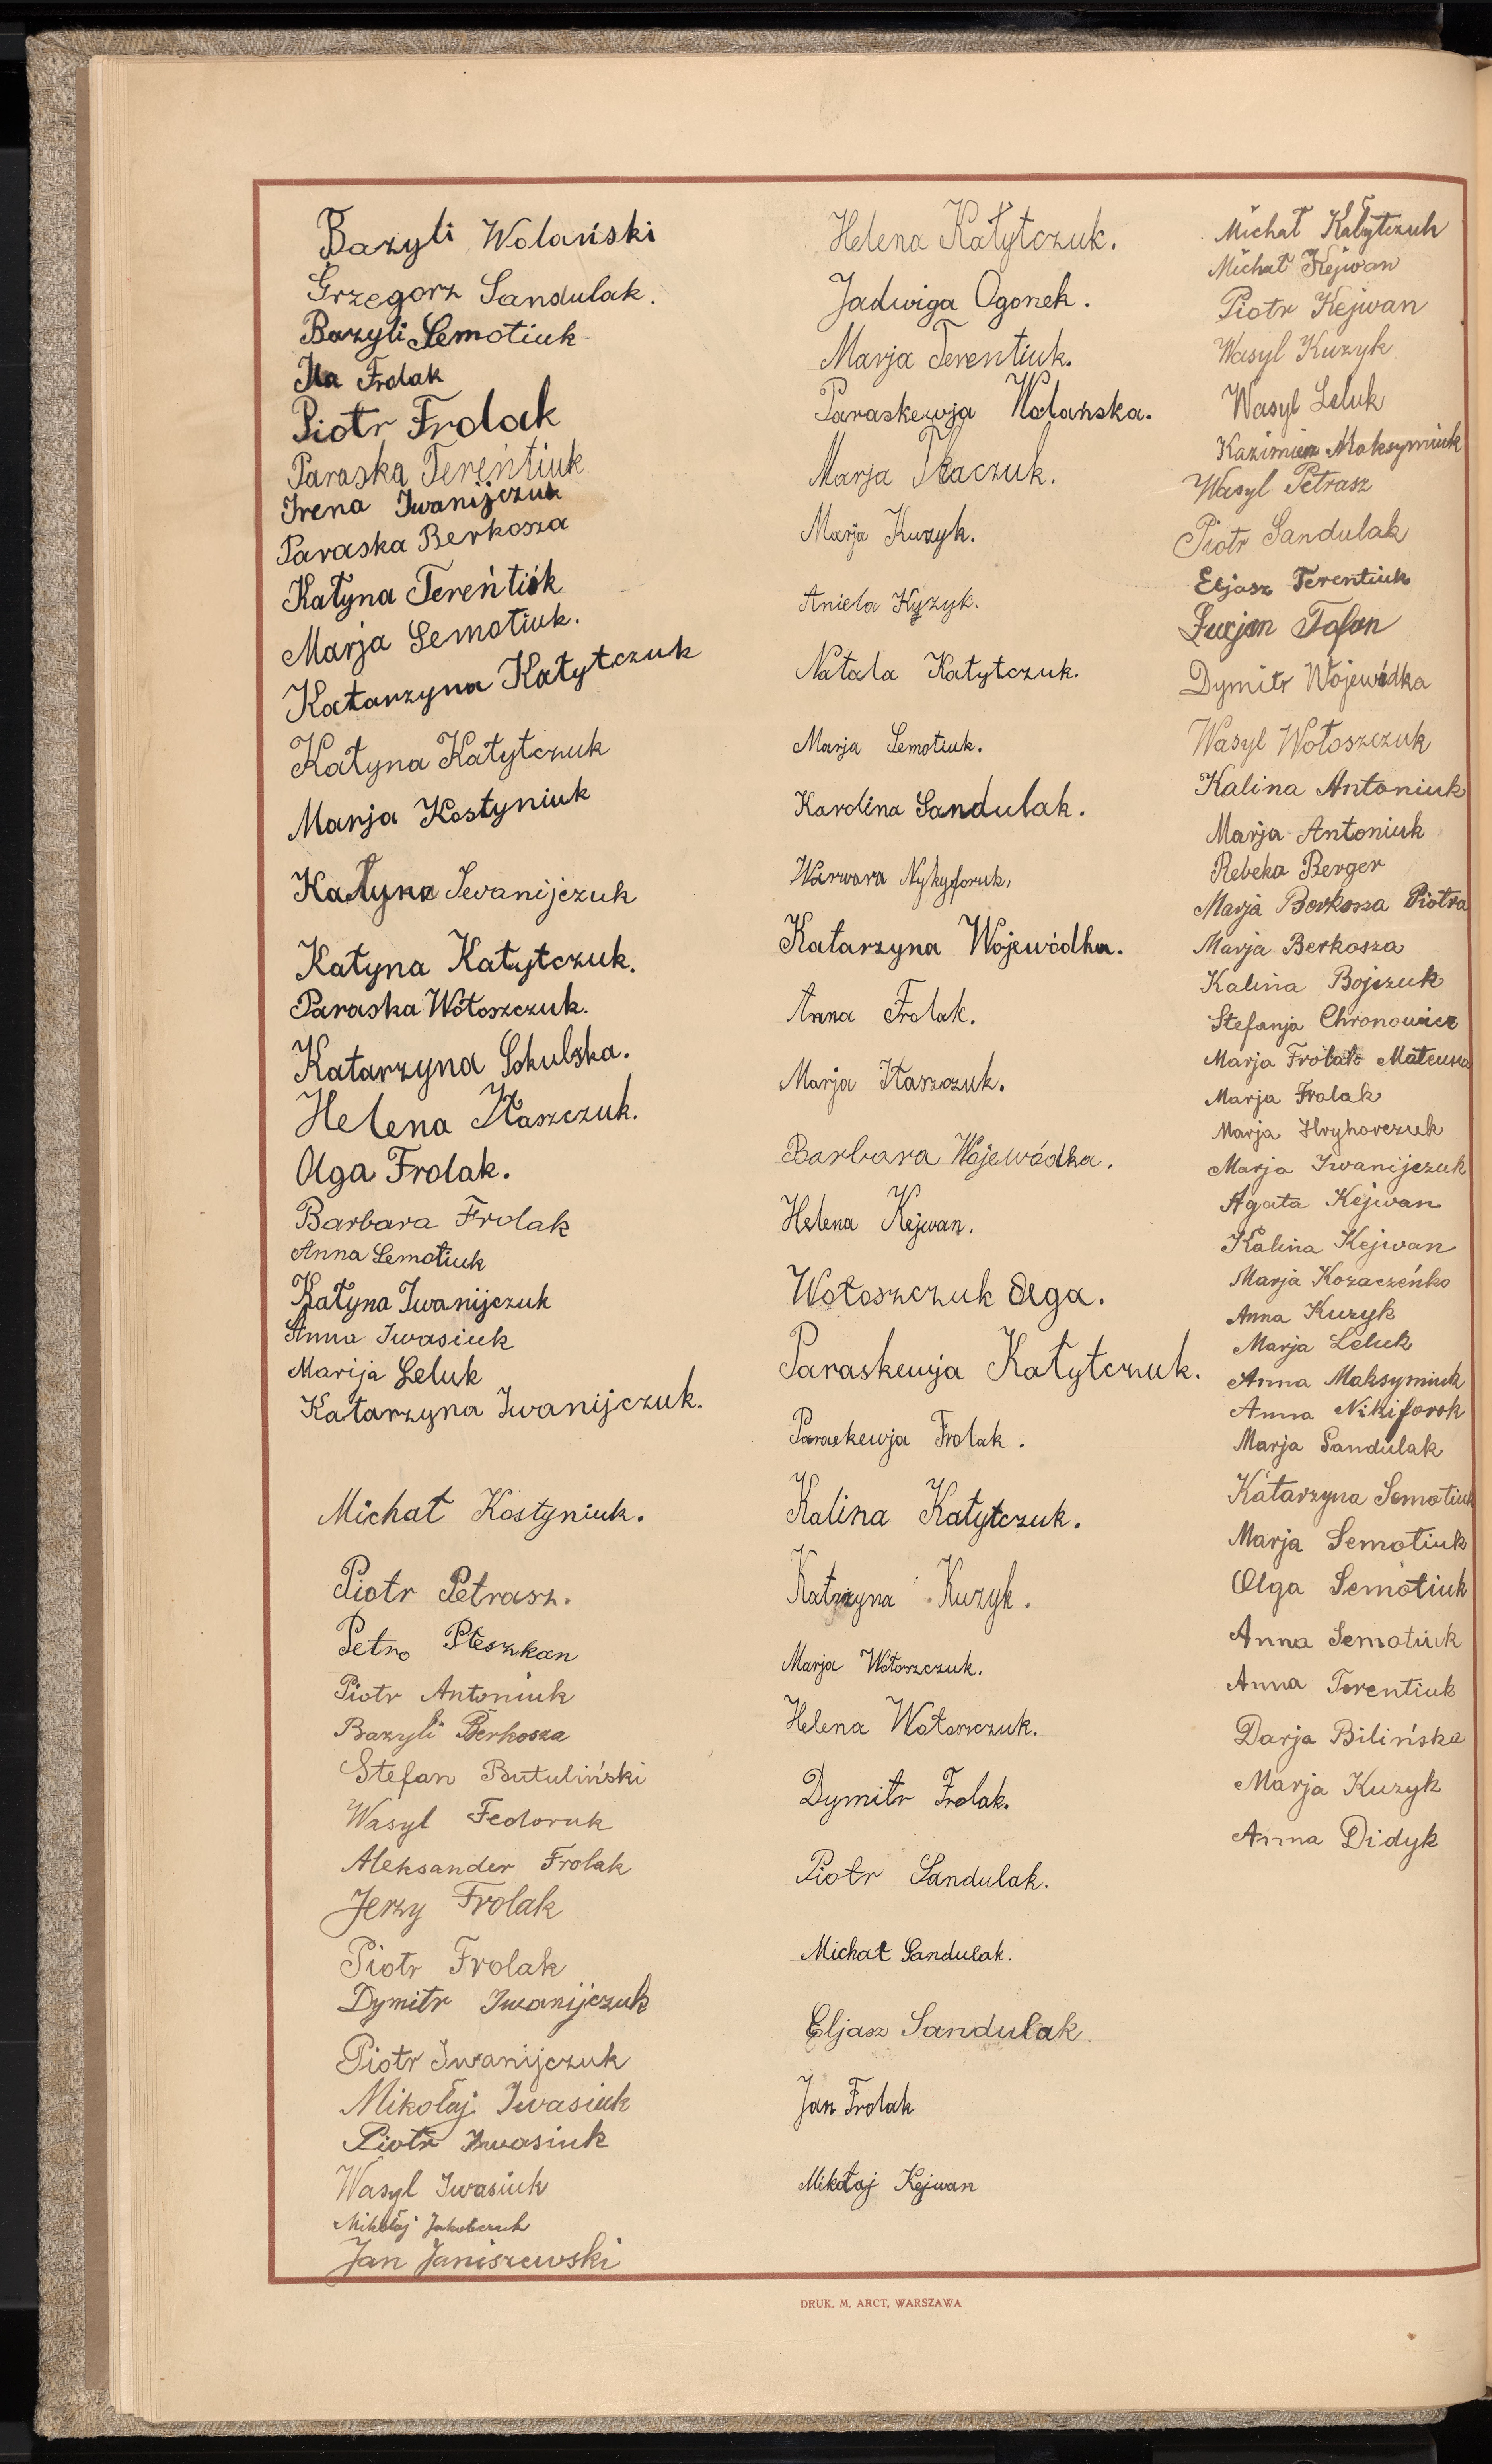 Bazyli Wolański
Grzegorz Sandulak.
Bazyli Semotiuk
Ila Frolak
Piotr Frolak
Paraska Tereńtiuk
Irena Iwanijczuk
Paraska Berkosza
Kałyna Tereńtiuk
Marja Semotiuk.
Katarzyna Kałytczuk
Kałyna Kałytczuk
Marja Kostyniuk
Kałyna Iwanijczuk
Kałyna Kałytczuk.
Paraska Wołoszczuk.
Katarzyna Sokulska.
Helena Iłaszczuk.
Olga Frolak.
Barbara Frolak
Anna Semotiuk
Kałyna Iwanijczuk
Anna Iwasiuk
Marija Leluk
Katarzyna Iwanijczuk.
Michał Kostyniuk.
Piotr Petrasz.
Petro Pleszkan
Piotr Antoniuk
Bazyli Berkosza
Stefan Butuliński
Wasyl Fedoruk
Aleksander Frolak
Jerzy Frolak
Piotr Frolak
Dymitr Iwanijczuk
Piotr Iwanijczuk
Mikołaj Iwasiuk
Piotr Iwasiuk
Wasyl Iwasiuk
Mikołaj Jakobczuk
Jan Janiszewski
Helena Kałytczuk.
Jadwiga Ogonek.
Marja Terentiuk.
Paraskewja Wolańska.
Marja Tkaczuk.
Marja Kuzyk.
Aniela Kyzyk.
Natala Kałytczuk.
Marja Semotiuk.
Karolina Sandulak.
Warwara Nykyforuk,
Katarzyna Wojewódka.
Anna Frolak.
Marja Iłaszczuk.
Barbara Wojewódka.
Helena Kejwan.
Wołoszczuk Olga.
Paraskewja Kałytczuk.
Paraskewja Frolak.
Kalina Kałytczuk.
Katarzyna Kuzyk.
Marja Wołoszczuk.
Helena Wołoszczuk.
Dymitr Frolak.
Piotr Sandulak.
Michał Sandulak.
Eljasz Sandulak.
Jan Frolak
Mikołaj Kejwan
Michał Kałytczuk
Michał Kejwan
Piotr Kejwan
Wasyl Kuzyk
Wasyl Leluk
Kazimierz Maksymiuk
Wasyl Petrasz
Piotr Sandulak
Eljasz Terentiuk
Łucjan Tofan
Dymitr Wojewódka
Wasyl Wołoszczuk
Kalina Antoniuk
Marja Antoniuk
Rebeka Berger
Marja Berkosza Piotra
Marja Berkosza
Kalina Bojczuk
Stefanja Chronowicz
Marja Frolak Mateusza
Marja Frolak
Marja Hryhorczuk
Marja Iwanijczuk
Agata Kejwan
Kalina Kejwan
Marja Kozaczeńko
Anna Kuzyk
Marja Leluk
Anna Maksymiuk
Anna Nikiforok
Marja Sandulak
Katarzyna Semotiuk
Marja Semotiuk
Olga Semotiuk
Anna Semotiuk
Anna Terentiuk
Darja Bilińska
Marja Kuzyk
Anna Didyk
DRUK. M. ARCT, WARSZAWA